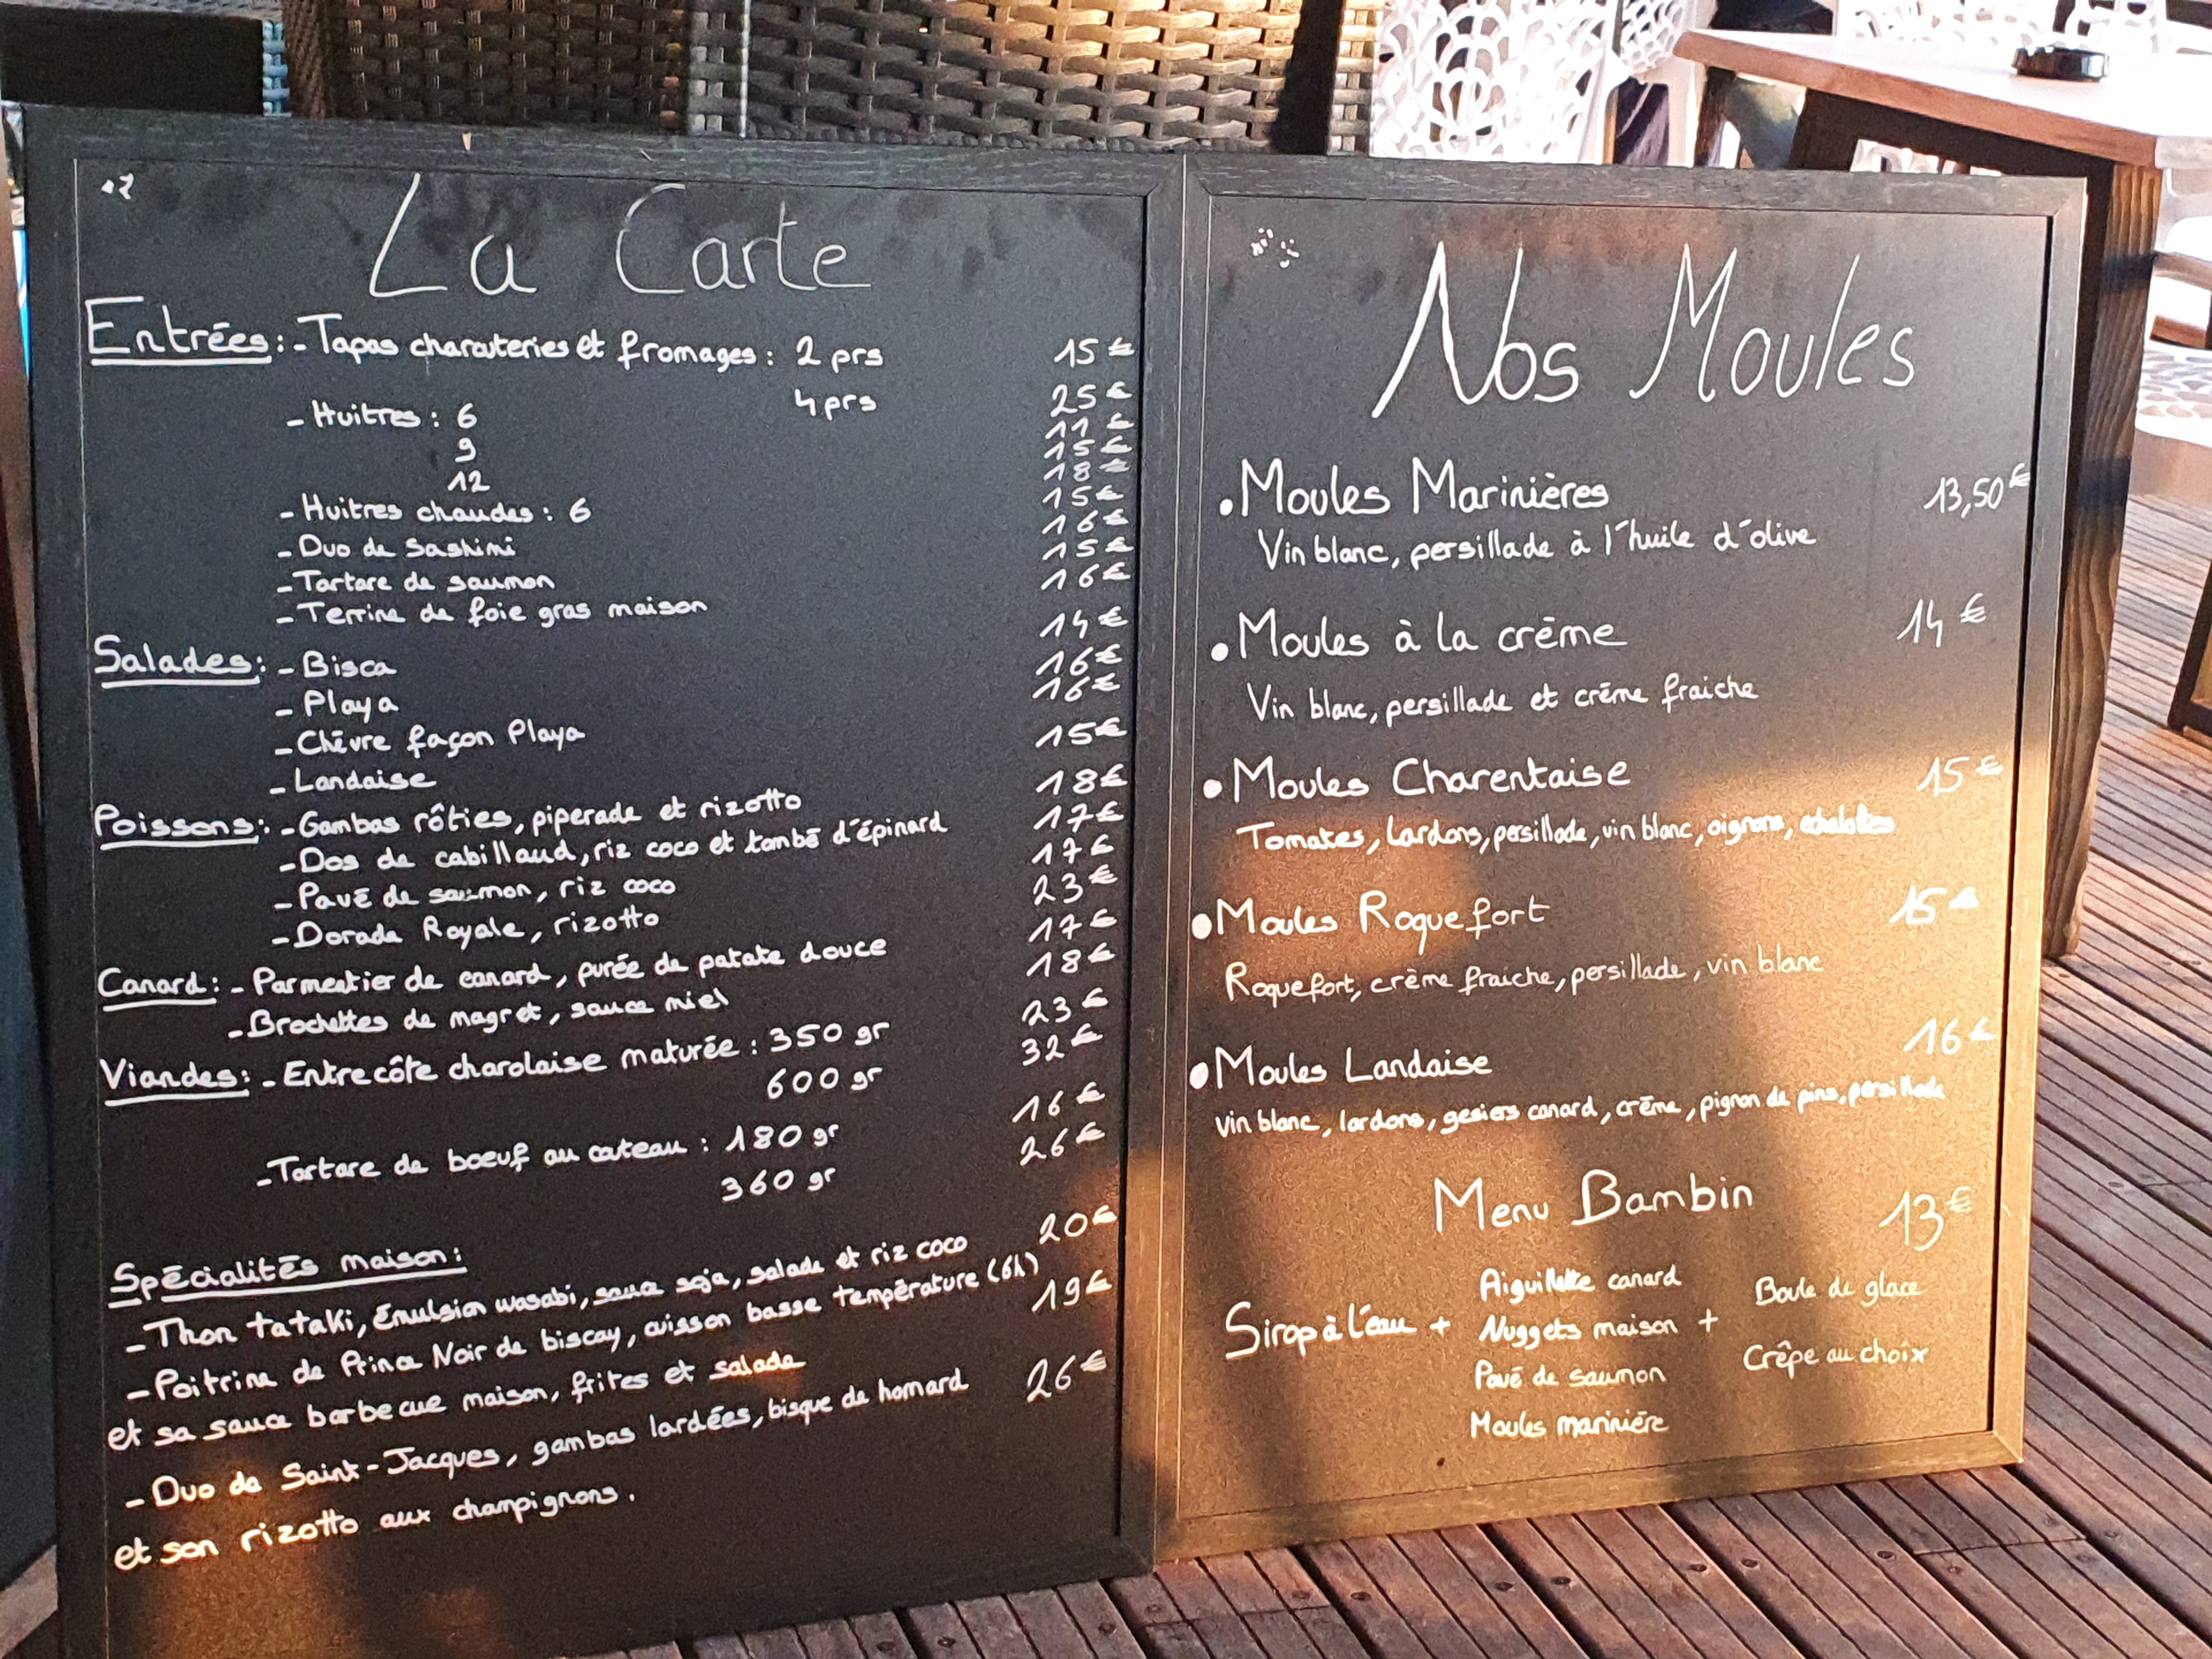 La Carte
Entrées: - Tapas charcuteries et fromages: 2 prs 15€
4 prs 25€
- Huitres: 6 11€
9 15€
12 18€
- Huitres chaudes: 6 15€
- Duo de Sashimi 16€
- Tartare de saumon 15€
- Terrine de foie gras maison 16€
Salades: - Bisca 14€
- Playa 16€
- Chèvre façon Playa 16€
- Landaise 15€
Poissons: - Gambas rôties, piperade et rizotto 18€
- Dos de cabillaud, riz coco et tombé d'épinard 17€
- Pavé de saumon, riz coco 17€
- Dorade Royale, rizotto 23€
Canard: - Parmentier de canard, purée de patate douce 17€
- Brochettes de magret, sauce miel 18€
Viandes: - Entrecôte charolaise maturée: 350 gr 23€
600 gr 32€
- Tartare de boeuf au couteau: 180 gr 16€
360 gr 26€
Spécialités maison:
- Thon tataki, Emulsion wasabi, sauce soja, salade et riz coco 20€
- Poitrine de Prince Noir de biscay, cuisson basse température (6h) 19€
et sa sauce barbecue maison, frites et salade
- Duo de Saint-Jacques, gambas lardées, bisque de homard 26€
et son rizotto aux champignons.
Nos Moules
• Moules Marinières 13,50€
Vin blanc, persillade à l'huile d'olive
• Moules à la crème 14€
Vin blanc, persillade et crème fraiche
• Moules Charentaise 15€
Tomates, Lardons, persillade, vin blanc, oignons, echalottes
• Moules Roquefort 15€
Roquefort, crème fraiche, persillade, vin blanc
• Moules Landaise 16€
Vin blanc, lardons, gesiers canard, crème, pignon de pins, persillade
Menu Bambin 13€
Sirop à l'eau +
Aiguillette canard
Nuggets maison +
Pavé de saumon
Moules marinière
Boule de glace
Crêpe au choix